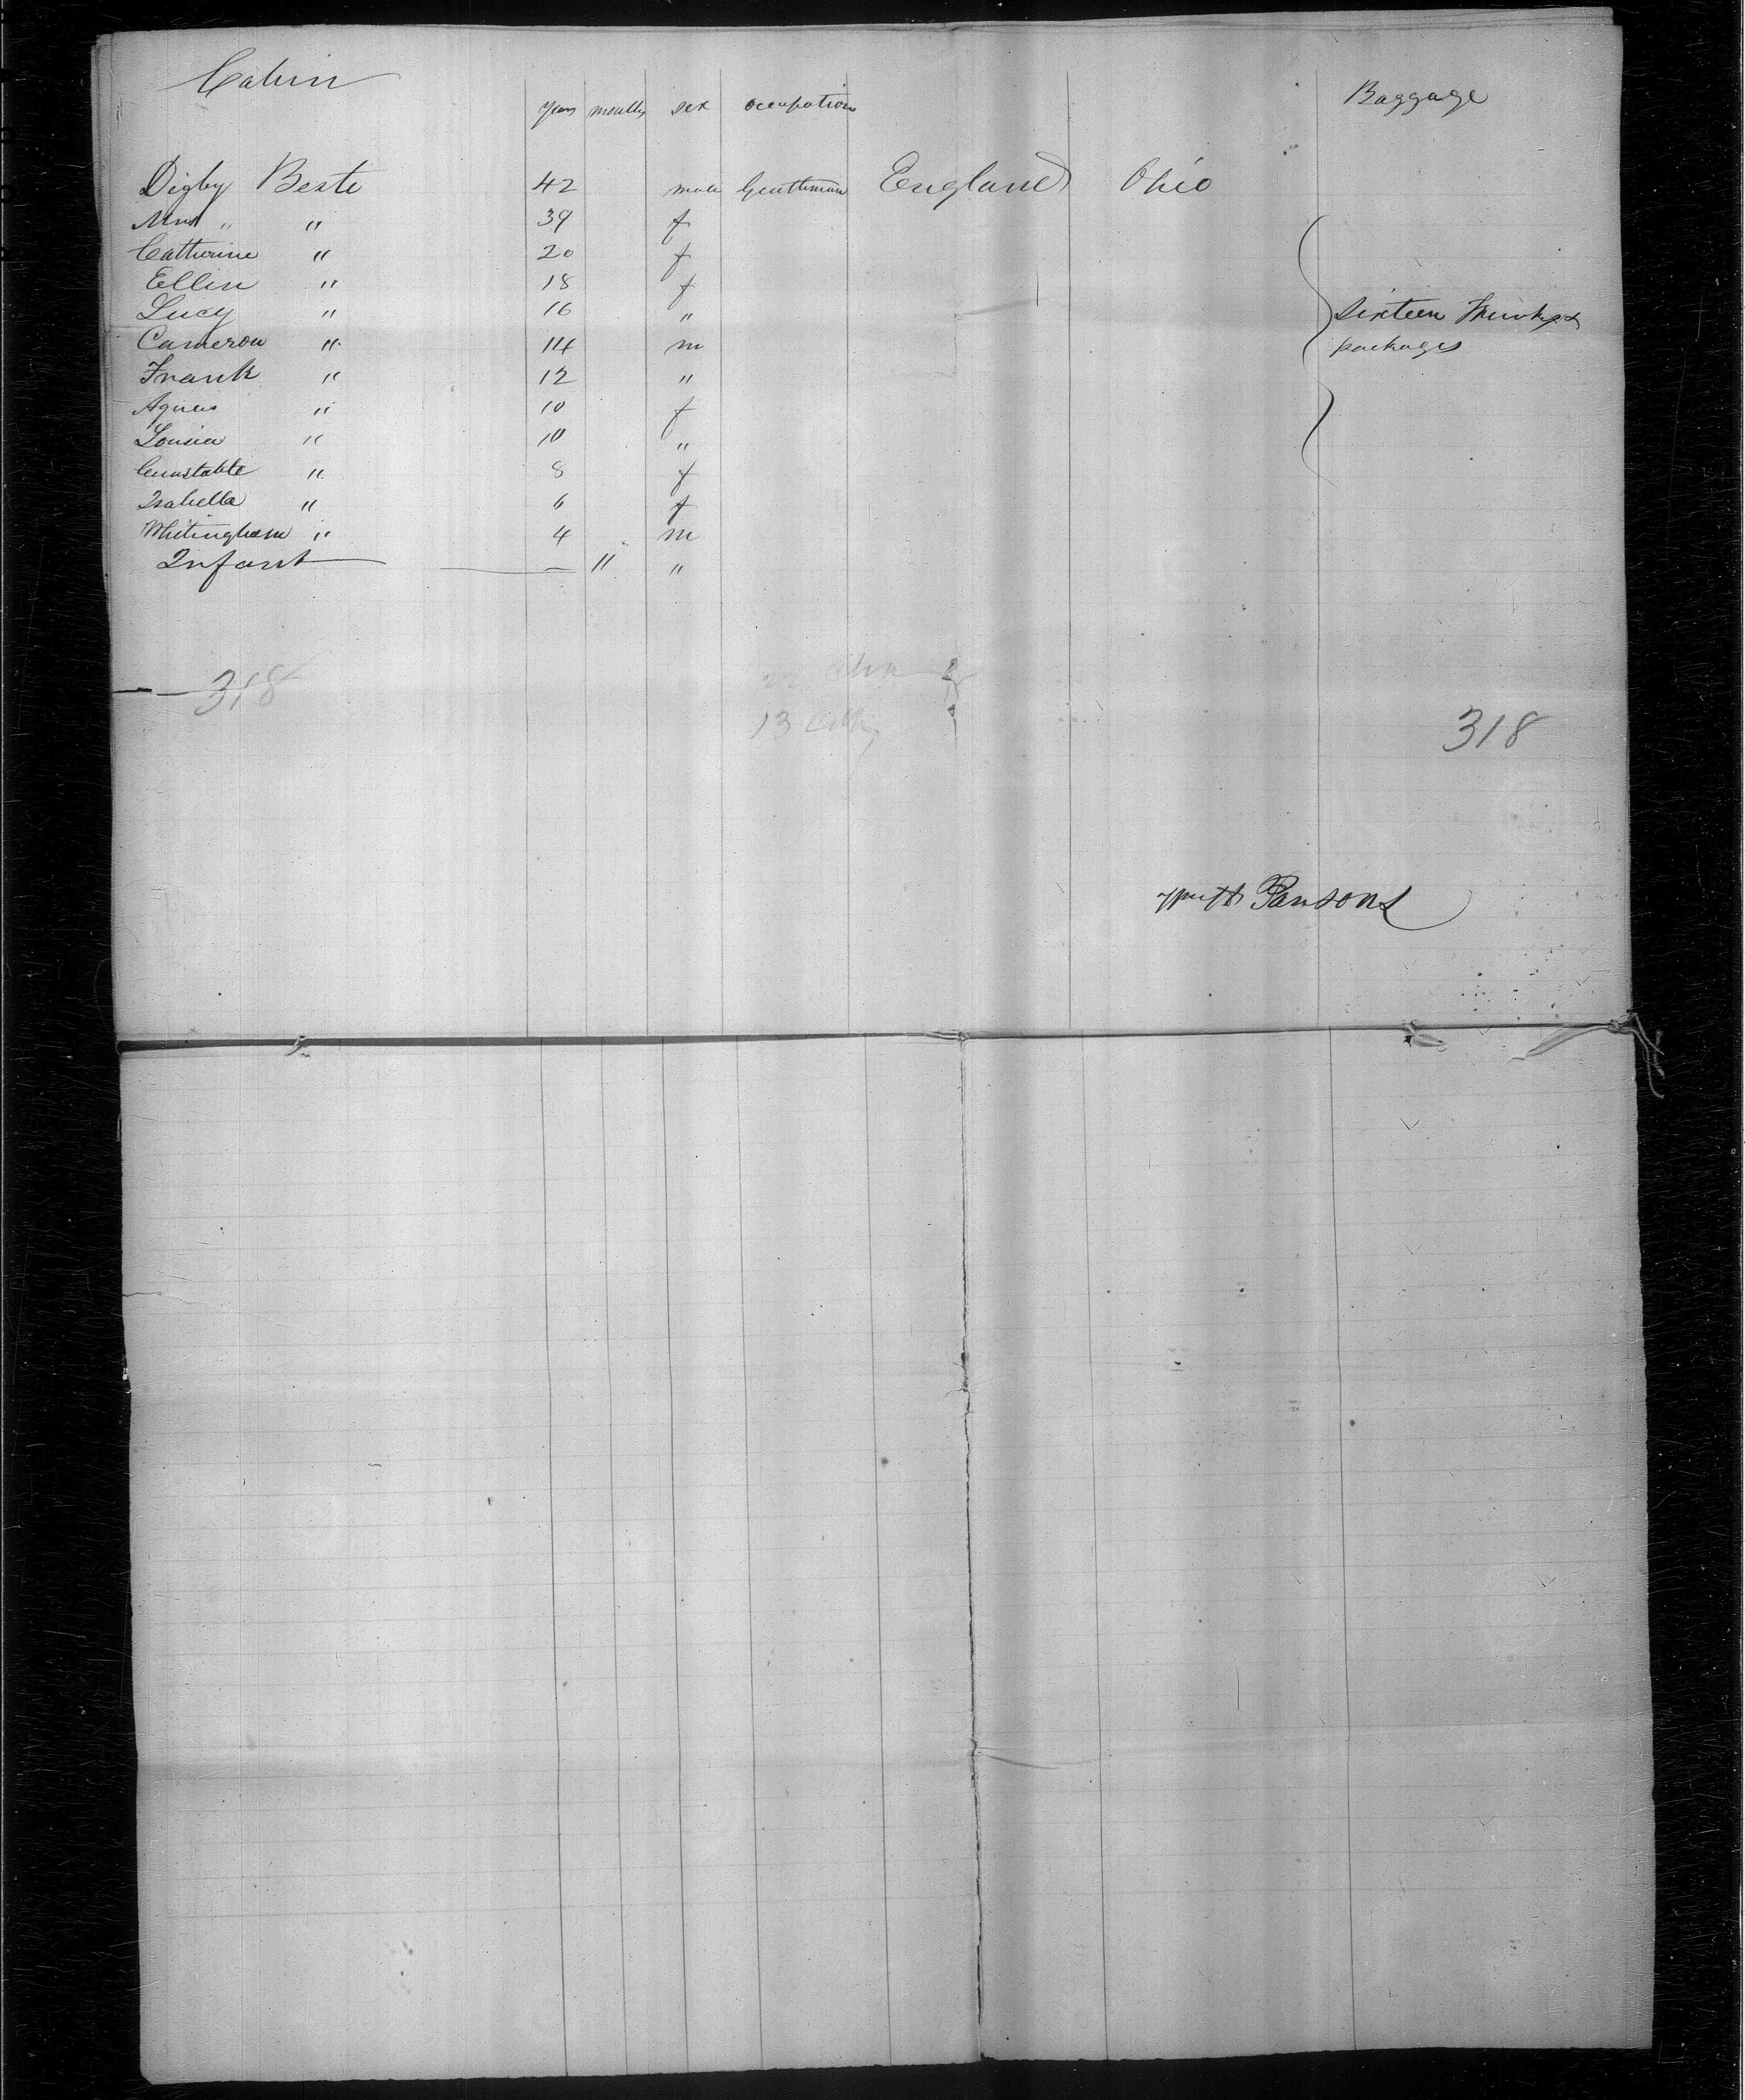 Cabin
Years months sex occupation Baggage
Digby Beste 42 male Gentleman England Ohio
Mrs " " 39 f
Catherine " 20 f
Ellin " 18 f
Lucy " 16 " Sixteen Trunks &
Cameron " 14 m packages
Frank " 12 "
Agnes " 10 f
Louisa " 10 "
Cunstable " 8 f
Isabella " 6 f
Whitingham " 4 m
Infant — 11 "
318
13
318
Parsons